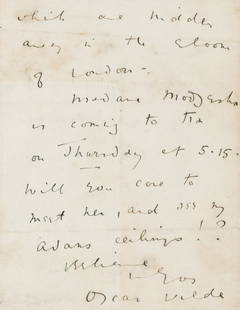 which are hidden
away in the gloom
of London –
Madame Modjeska
is coming to tea
on Thursday at 5.15.
Will you come to
meet her, and see my
Adams ceilings!?
Believe
Yrs
Oscar Wilde